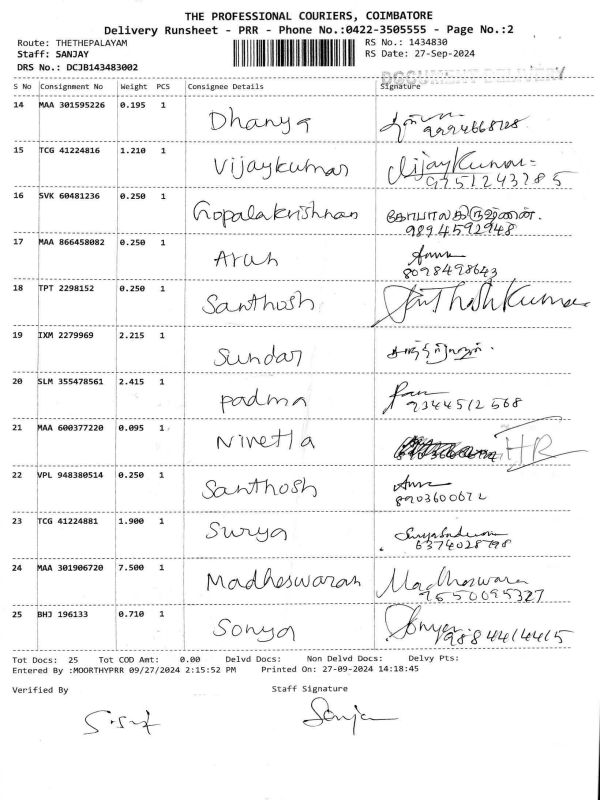 THE PROFESSIONAL COURIERS, COIMBATORE
Delivery Runsheet - PRR - Phone No.:0422-3505555 - Page No.:2
Route: THETHEPALAYAM RS No.: 1434830
Staff: SANJAY RS Date: 27-Sep-2024
DRS No.: DCJB143483002
DOCUMENT DELIVERY
S No Consignment No Weight PCS Consignee Details Signature
14 MAA 301595226 0.195 1 Dhanya
9994668728
15 TCG 41224816 1.210 1 Vijaykumar Vijaykumar
9751243785
16 SVK 60481236 0.250 1 Gopalakrishnan கோபாலகிருஷ்ணன்.
9894592948
17 MAA 866458082 0.250 1 Arun
8098498643
18 TPT 2298152 0.250 1 Santhosh SinthoshKumar
19 IXM 2279969 2.215 1 Sundar
20 SLM 355478561 2.415 1 padma
9344512568
21 MAA 600377220 0.095 1 Nivetla HR
22 VPL 948380514 0.250 1 Santhosh
8903600672
23 TCG 41224881 1.900 1 Surya
6374028798
24 MAA 301906720 7.500 1 Madheswaran Madheswara
9550095327
25 BHJ 196133 0.710 1 Sonya Sonya
9884414415
Tot Docs: 25 Tot COD Amt: 0.00 Delvd Docs: Non Delvd Docs: Delvy Pts:
Entered By :MOORTHYPRR 09/27/2024 2:15:52 PM Printed On: 27-09-2024 14:18:45
Verified By Staff Signature